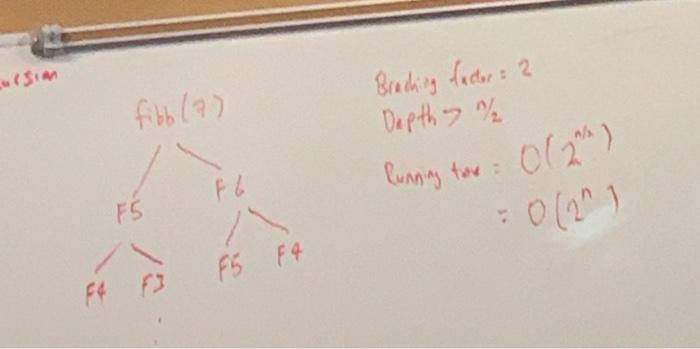 ursion
fibb(7)
F5 F6
F4 F3 F5 F4
Braching factor = 2
Depth > n/2
Running time = O(2^n/2)
= O(2^n)